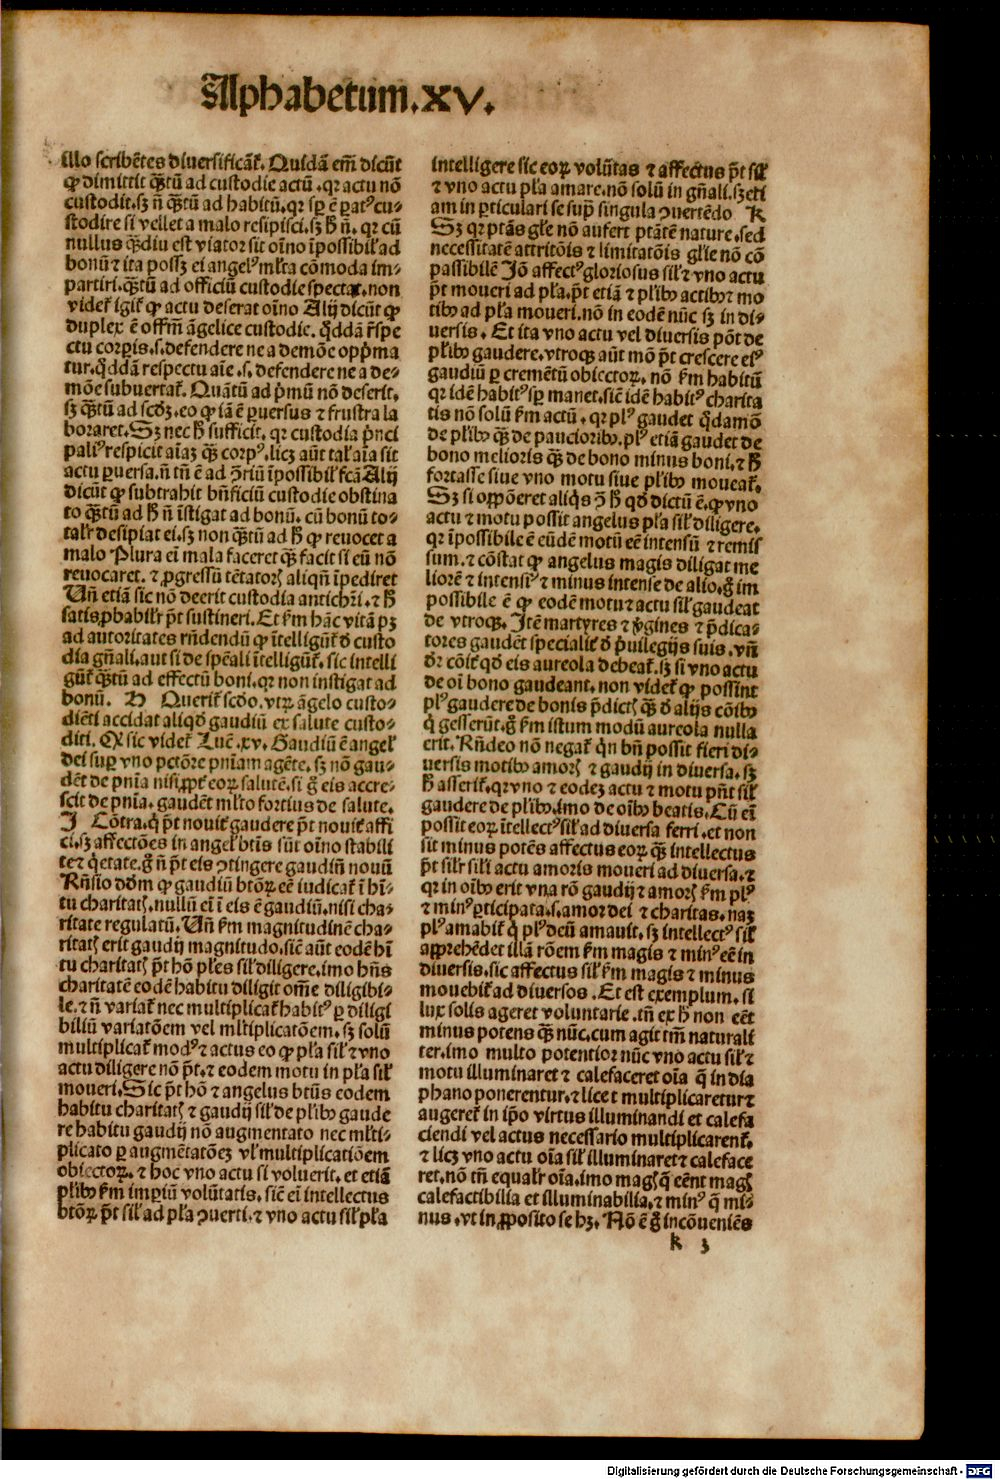 Alphabetum.XV.
illo scribētes diuersificāt̄. Quidā em̄ dicūt
ꝙ dimittit q̄ꝫtū ad custodie actū .qꝛ actu nō
custodit.sꝫ n̄ q̄ꝫtū ad habitū.qꝛ sꝑ ē ꝑatꝰcu⸗
stodire si vellet a malo resipisci.sꝫ h̄ n̄. qꝛ cū
nullus q̄ꝫdiu est viator sit oīno īpossibił ad
bonū ⁊ ita possꝫ ei angelꝰ młta cōmoda im⸗
partiri.q̄ꝫtū ad officiū custodie spectat.non
videt̄ igit̄ ꝙ actu deserat oīno Alij dicūt ꝙ
duplex ē offm̄ āgelice custodie. q̄ddā r̄spe
ctu corꝑis.s.defendere ne a demōe opp̄ma
tur.q̄ddā respectu aīe .s. defendere ne a de⸗
mōe subuertat̄. Quātū ad p̄mū nō deserit.
sꝫ q̄ꝫtū ad scd̄ꝫ.eo ꝙ iā ē ꝑuersus ⁊ frustra la
boraret.Sꝫ nec h̄ sufficit. qꝛ custodia p̄nci
paliꝰrespicit aīaꝫ q̄ꝫ corpꝰ.licꝫ aūt tał aīa sit
actu ꝑuersa.n̄ tn̄ ē ad ꝯriū īpossibił fcā Alij
dicūt ꝙ subtrahit bn̄ficiū custodie obstina
to q̄ꝫtū ad h̄ n̄ īstigat ad bonū. cū bonū to⸗
talr̄ desipiat ei.sꝫ non q̄ꝫtū ad h̄ ꝙ reuocet a
malo Plura eī mala faceret q̄ꝫ facit si eū nō
reuocaret. ⁊ ꝓgressū tētatorꝭ aliqn̄ īpediret
Un̄ etiā sic nō deerit custodia antichr̄i.⁊ h̄
satis ꝓbabilr̄ p̄t sustineri. Et km̄ hāc vitā pꝫ
ad autoritates rn̄dendū ꝙ ītelligūt̄ d̄ custo
dia gn̄ali.aut si de spēali ītelligūt̄. sic intelli
gūt̄ q̄ꝫtū ad effectū boni.qꝛ non instigat ad
bonū. H Querit̄ scd̄o.vtꝝ āgelo custo⸗
diēti accidat aliqd̄ gaudiū ex salute custo⸗
diti. Q̇ sic videt̄ Luc̄.xv. Gaudiū ē angeł
dei suꝑ vno pctōre pniam agēte. sꝫ nō gau⸗
dēt de pnīa nisi ꝓpt̄ eoꝝ salutē.si g̊ eis accre⸗
scit de pnīa. gaudēt młto fortius de salute.
I Cōtra.q̇ p̄t nouit̄ gaudere p̄t nouit̄ affi
ci.sꝫ affectōes in angeł btīs sūt oīno stabili
te⁊ q̇etate.g̊ n̄ p̄t eis ꝯtingere gaudiū nouū
Rn̄sio dd̄m ꝙ gaudiū btōꝝ eē iudicat̄ ī hī⸗
tu charitatꝭ.nullū eī ī eis ē gaudiū.nisi cha⸗
ritate regulatū. Un̄ km̄ magnitudinē cha⸗
ritatꝭ erit gaudij magnitudo.sic̄ aūt eodē hī
tu charitatꝭ p̄t hō ples sił diligere.imo hn̄s
charitatē eodē habitu diligit om̄e diligibi⸗
le. ⁊ n̄ variat̄ nec multiplicat̄ habitꝰ ꝑ diligi
biliū variatōem vel młtiplicatōem. sꝫ solū
multiplicat̄ modꝰ⁊ actus eo ꝙ pła sił ⁊ vno
actu diligere nō p̄t.⁊ eodem motu in pła sił
moueri. Sic p̄t hō ⁊ angelus btūs eodem
habitu charitatꝭ ⁊ gaudij sił de plib⁹ gaude
re habitu gaudij nō augmentato nec młti⸗
plicato ꝑ augmētatōeꝫ vł multiplicatiōem
obiectoꝝ. ⁊ hoc vno actu si voluerit. et etiā
plib⁹ km̄ impiū volūtatis. sic̄ eī intellectus
btōꝝ p̄t sił ad pła ꝯuerti.⁊ vno actu sił pła
intelligere sic eoꝝ volūtas ⁊ affectus p̄t sił
⁊ vno actu pła amare.nō solū in gn̄ali.sꝫ eti
am in ꝑticulari se suꝑ singula ꝯuertēdo K
Sꝫ qꝛ ptās głe nō aufert ptātē nature. sed
necessitatē attritōis ⁊ limitatōis głie nō cō
passibilē Iō affectꝰ gloriosus sił ⁊ vno actu
p̄t moueri ad pła.p̄t etiā ⁊ plib⁹ actib⁹ ⁊ mo
tib⁹ ad pła moueri.nō in eodē nūc sꝫ in di⸗
uersis. Et ita vno actu vel diuersis pōt de
plib⁹ gaudere.vtroqꝫ aūt mō p̄t crescere eiꝰ
gaudiū ꝑ cremētū obiectoꝝ. nō km̄ habitū
qꝛ idē habitꝰ sꝑ manet.sic̄ idē habitꝰ charita
tis nō solū km̄ actū. qꝛ plꝰ gaudet q̄damō
de plib⁹ q̄ꝫ de paucioribꝰ.plꝰ etiā gaudet de
bono melioris q̄ꝫ de bono minus boni.⁊ h̄
fortasse siue vno motu siue plib⁹ moueat̄.
Sꝫ si opponeret aliq̇s ꝯ h̄ qd̄ dictū ē.ꝙ vno
actu ⁊ motu possit angelus pła sił diligere.
qꝛ īpossibile ē eūdē motū eē intensū ⁊ remis
sum. ⁊ cōstat ꝙ angelus magis diligat me
liorē ⁊ intensiꝰ ⁊ minus intense de alio.g̊ im
possibile ē ꝙ eodē motu ⁊ actu sił gaudeat
de vtroqꝫ. Itē martyres ⁊ v̄gines ⁊ p̄dica⸗
tores gaudēt specialit̄ d̄ p̄uilegijs suis. vn̄
dr̄ cōit̄ qd̄ eis aureola debeat̄. sꝫ si vno actu
de oī bono gaudeant. non videt̄ ꝙ possint
plꝰ gaudere de bonis p̄dictꝭ q̄ꝫ d̄ alijs cōib⁹
q̄ gesserūt. g̊ km̄ istum modū aureola nulla
erit. Rn̄deo nō negat̄ q̇n bn̄ possit fieri di⸗
uersis motib⁹ amorꝭ ⁊ gaudij in diuersa. sꝫ
h̄ asserit̄.qꝛ vno ⁊ eodeꝫ actu ⁊ motu pn̄t sił
gaudere de plib⁹.imo de oīb⁹ beatis. Cū eī
possit eoꝝ ītellectꝰ sił ad diuersa ferri. et non
sit minus potēs affectus eoꝝ q̄ꝫ intellectus
p̄t silr̄ sili actu amoris moueri ad diuersa. ⁊
qꝛ in oīb⁹ erit vna rō gaudij ⁊ amorꝭ km̄ plꝰ
⁊ minꝰ ꝑticipata.s.amor dei ⁊ charitas. naꝫ
plꝰ amabit̄ q̇ plꝰ deū amauit. sꝫ intellectꝰ sił
apprehēdet illā rōem km̄ magis ⁊ minꝰ eē in
diuersis.sic affectus sił km̄ magis ⁊ minus
mouebit̄ ad diuersos. Et est exemplum. si
lux solis ageret voluntarie. tn̄ ex h̄ non eēt
minus potens q̄ꝫ nūc.cum agit tm̄ naturali
ter.imo multo potentior nūc vno actu sił ⁊
motu illuminaret ⁊ calefaceret oīa q̄ in dia
phano ponerentur.⁊ licet multiplicaretur⁊
augeret̄ in ip̄o virtus illuminandi et calefa
ciendi vel actus necessario multiplicarent̄.
⁊ licꝫ vno actu oīa sił illuminaret ⁊ caleface
ret.nō tn̄ equalr̄ oīa.imo magꝭ q̄ eēnt magꝭ
calefactibilia et illuminabilia.⁊ minꝰ q̄ mi⸗
nus .vt in ꝓposito se hꝫ. Nō ē g̊ incōueniēs
k 3
Digitalisierung gefördert durch die Deutsche Forschungsgemeinschaft - DFG